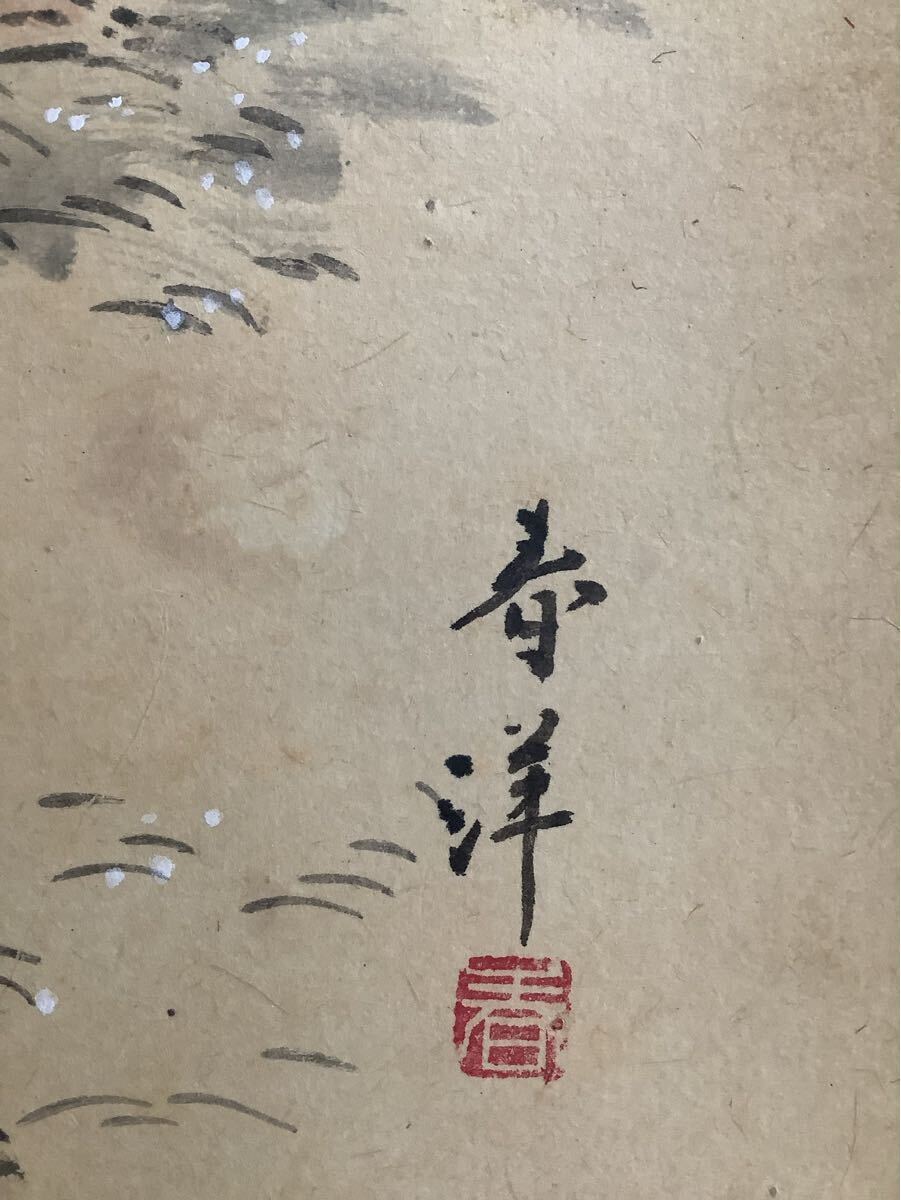 春洋
春